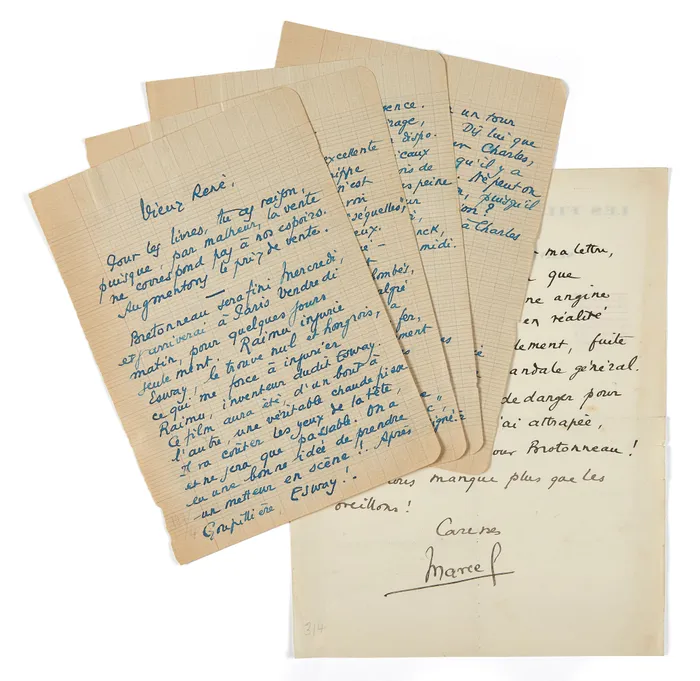 Vieux René,
Pour les livres, tu as raison,
puisque, par malheur, la vente
ne correspond pas à nos espoirs.
Augmentons le prix de vente.
Brotonneau sera fini mercredi,
et j'arriverai à Paris vendredi
matin, pour quelques jours
seulement. Raimu injurie
Esway, le trouve nul et hongrois,
ce qui me force à injurier
Raimu, inventeur dudit Esway.
Ce film aura été d'un bout à
l'autre, une véritable chaude pisse
Il va coûter les yeux de la tête,
et ne sera que passable. On a
eu une bonne idée de prendre
un metteur en scène!. Après
Goupillière, Esway!.
excellente
n'est
séquelles,
eux.
lombés,
algré
a
fer,
ment
igné.
ence.
rage,
dispo.
icaux
ois de
us peine
nck,
midi.
un tour
Dis lui que
ur Charles,
qu'il y a
Ne peut on
, puisqu'il
ion?
à Charles
LES FI
ma lettre,
que
ne angine
en réalité
dement, fuite
andale général.
de danger pour
'ai attrapée,
our Brotonneau!
ous manque plus que les
oreillons!
Caresses
Marcel
314